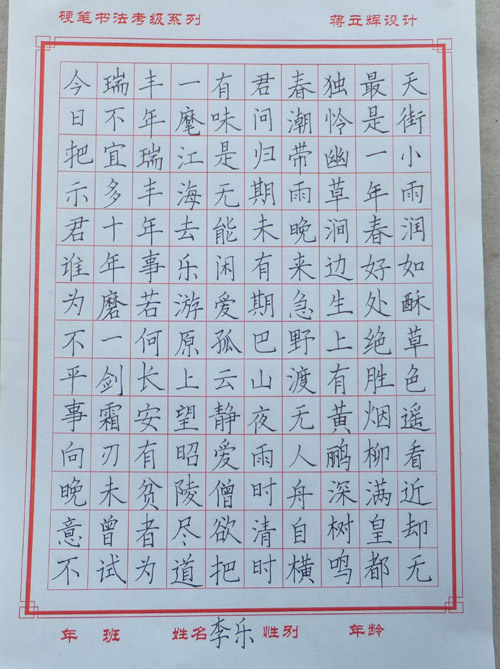 硬笔书法考级系列
蒋立辉设计
天街小雨润如酥草色遥看近却无
最是一年春好处绝胜烟柳满皇都
独怜幽草涧边生上有黄鹂深树鸣
春潮带雨晚来急野渡无人舟自横
君问归期未有期巴山夜雨时清时
有味是无能闲爱孤云静爱僧欲把
一麾江海去乐游原上望昭陵尽道
丰年瑞丰年事若何长安有贫者为
瑞不宜多十年磨一剑霜刃未曾试
今日把示君谁为不平事向晚意不
年 班 姓名李乐 性别 年龄